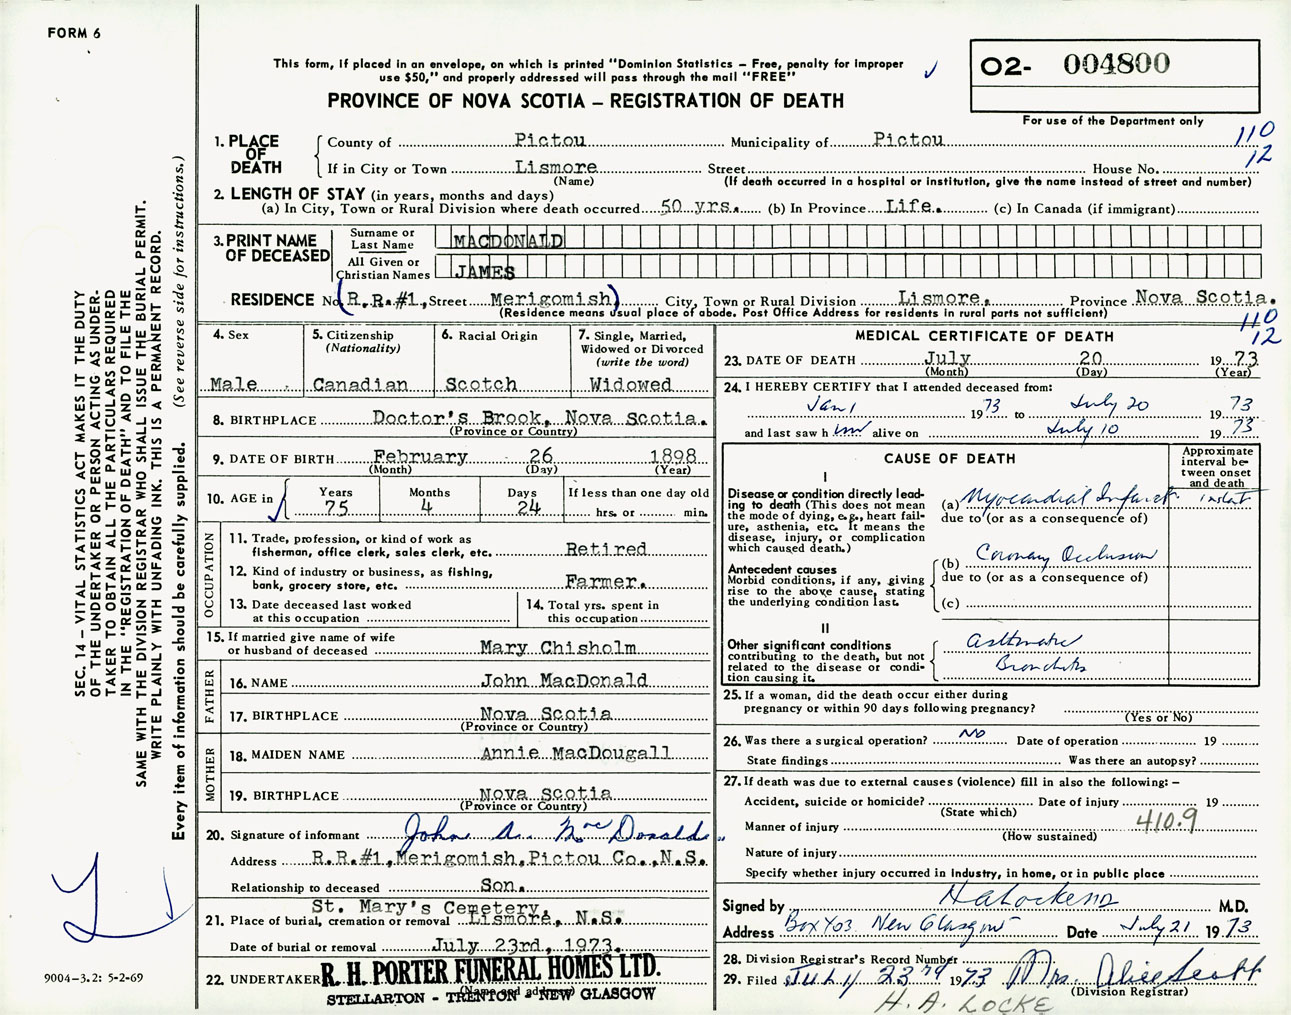 FORM 6
This form, if placed in an envelope, on which is printed "Dominion Statistics – Free, penalty for improper
use $50," and properly addressed will pass through the mail "FREE"
PROVINCE OF NOVA SCOTIA – REGISTRATION OF DEATH
O2- 004800
For use of the Department only
110
12
1. PLACE OF DEATH
County of Pictou Municipality of Pictou
If in City or Town Lismore Street House No.
(Name) (If death occurred in a hospital or institution, give the name instead of street and number)
2. LENGTH OF STAY (in years, months and days)
(a) In City, Town or Rural Division where death occurred 50 yrs. (b) In Province Life. (c) In Canada (if immigrant)
3. PRINT NAME OF DECEASED
Surname or Last Name MACDONALD
All Given or Christian Names JAMES
RESIDENCE No. (R.R.#1, Street Merigomish) City, Town or Rural Division Lismore. Province Nova Scotia.
(Residence means usual place of abode. Post Office Address for residents in rural parts not sufficient)
110
12
4. Sex
Male
5. Citizenship
(Nationality)
Canadian
6. Racial Origin
Scotch
7. Single, Married,
Widowed or Divorced
(write the word)
Widowed
8. BIRTHPLACE Doctor's Brook, Nova Scotia.
(Province or Country)
9. DATE OF BIRTH February 26 1898
(Month) (Day) (Year)
10. AGE in
Years Months Days If less than one day old
75 4 24 hrs. or min.
OCCUPATION
11. Trade, profession, or kind of work as
fisherman, office clerk, sales clerk, etc. Retired
12. Kind of industry or business, as fishing,
bank, grocery store, etc. Farmer.
13. Date deceased last worked
at this occupation
14. Total yrs. spent in
this occupation
15. If married give name of wife
or husband of deceased Mary Chisholm
FATHER
16. NAME John MacDonald
17. BIRTHPLACE Nova Scotia
(Province or Country)
MOTHER
18. MAIDEN NAME Annie MacDougall
19. BIRTHPLACE Nova Scotia
(Province or Country)
20. Signature of informant John A. MacDonald
Address R.R.#1, Merigomish, Pictou Co., N.S.
Relationship to deceased Son.
St. Mary's Cemetery,
21. Place of burial, cremation or removal Lismore, N.S.
Date of burial or removal July 23rd, 1973.
22. UNDERTAKER R. H. PORTER FUNERAL HOMES LTD.
(Name and address)
STELLARTON - TRENTON - NEW GLASGOW
MEDICAL CERTIFICATE OF DEATH
23. DATE OF DEATH July 20 1973
(Month) (Day) (Year)
24. I HEREBY CERTIFY that I attended deceased from:
Jan 1 1973 to July 20 1973
and last saw h im alive on July 10 1973
CAUSE OF DEATH
Approximate
interval be-
tween onset
and death
I
Disease or condition directly lead-
ing to death (This does not mean
the mode of dying, e.g., heart fail-
ure, asthenia, etc. It means the
disease, injury, or complication
which caused death.)
(a) Myocardial Infarct
due to (or as a consequence of)
(b) Coronary Occlusion
due to (or as a consequence of)
(c)
Antecedent causes
Morbid conditions, if any, giving
rise to the above cause, stating
the underlying condition last.
II
Other significant conditions
contributing to the death, but not
related to the disease or condi-
tion causing it.
Asthmatic
Bronchitis
25. If a woman, did the death occur either during
pregnancy or within 90 days following pregnancy?
(Yes or No)
26. Was there a surgical operation? No Date of operation 19
State findings Was there an autopsy?
27. If death was due to external causes (violence) fill in also the following: –
Accident, suicide or homicide? Date of injury 19
(State which)
Manner of injury 410.9
(How sustained)
Nature of injury
Specify whether injury occurred in industry, in home, or in public place
Signed by H A Locke MD M.D.
Address Box 403 New Glasgow Date July 21 1973
28. Division Registrar's Record Number
29. Filed July 23rd 1973 Mrs. Alice Scott
(Division Registrar)
H. A. LOCKE
SEC. 14 – VITAL STATISTICS ACT MAKES IT THE DUTY
OF THE UNDERTAKER OR PERSON ACTING AS UNDER-
TAKER TO OBTAIN ALL THE PARTICULARS REQUIRED
IN THE "REGISTRATION OF DEATH" AND TO FILE THE
SAME WITH THE DIVISION REGISTRAR WHO SHALL ISSUE THE BURIAL PERMIT.
WRITE PLAINLY WITH UNFADING INK. THIS IS A PERMANENT RECORD.
Every item of information should be carefully supplied. (See reverse side for instructions.)
9004-3.2: 5-2-69